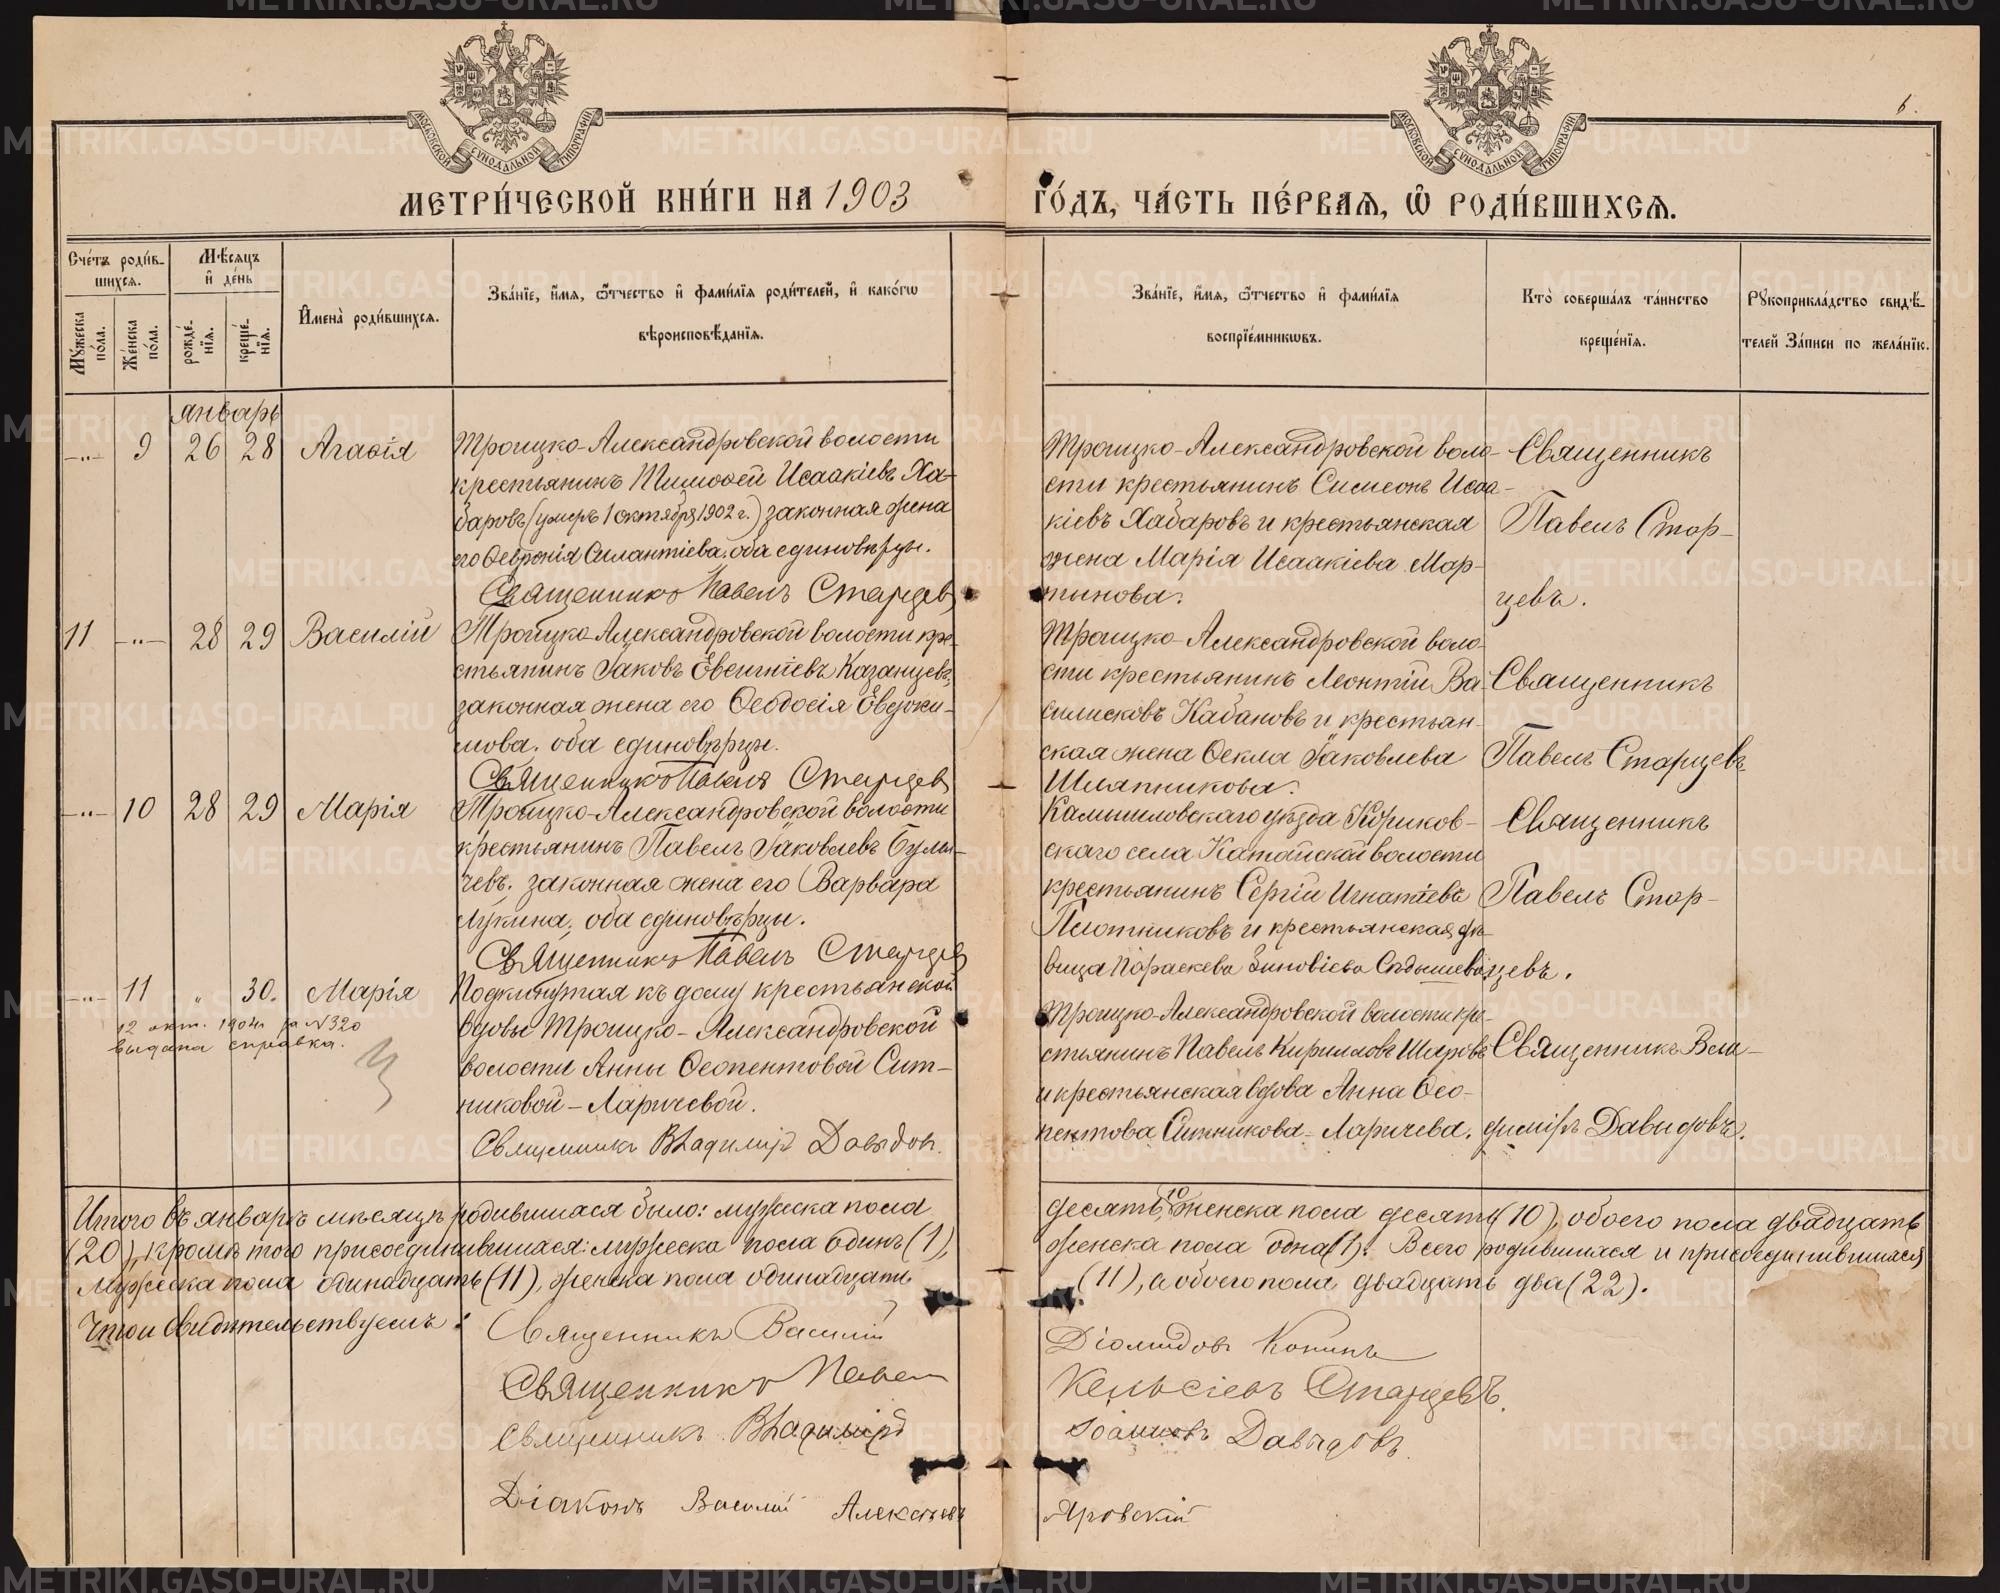 6.
МОСКОВСКОЙ СѴНОДАЛЬНОЙ ТИПОГРАФІИ
МОСКОВСКОЙ СѴНОДАЛЬНОЙ ТИПОГРАФІИ
МЕТРИ́ЧЕСКОЙ КНИ́ГИ НА 1903
ГО́ДЪ, ЧА́СТЬ ПЕ́РВАѦ, Ѡ҆ РОДИ́ВШИХСѦ.
Сче́тъ роди́в-
шихсѧ.
Мꙋ́жеска по́ла.
Же́нска по́ла.
Мѣ́сѧцъ
и҆ де́нь
рожде́-
нїѧ.
креще́-
нїѧ.
И҆мена̀ роди́вшихсѧ.
Зва́нїе, и҆́мѧ, ѻ҆́тчество и҆ фами́лїѧ роди́телей, и҆ како́гѡ
вѣроисповѣ́данїѧ.
Зва́нїе, и҆́мѧ, ѻ҆́тчество и҆ фами́лїѧ
воспрїе́мникѡвъ.
Кто̀ соверша́лъ та́инство
креще́нїѧ.
Рꙋкоприкла́дство свидѣ́-
телей За́писи по жела́нїю.
январь
9 26 28 Агаѳія
Троицко-Александровской волости
крестьянинъ Тимоѳей Исаакіевъ Ха-
баровъ (умеръ 1 октября 1902 г.) законная жена
его Ѳевронія Силантіева. оба единовѣрцы.
Священникъ Павелъ Старцев
Троицко-Александровской воло-
сти крестьянинъ Симеонъ Исаа-
кіевъ Хабаровъ и крестьянская
жена Марія Исаакіева Мар-
тынова.
Священникъ
Павелъ Стар-
цевъ.
11 -"- 28 29 Василій
Троицко-Александровской волости кре-
стьянинъ Іаковъ Евсигніевъ Казанцевъ,
законная жена его Ѳеодосія Евдоки-
мова. оба единовѣрцы.
Священникъ Павелъ Старцев
Троицко-Александровской воло-
сти крестьянинъ Леонтій Ва-
силисковъ Кабановъ и крестьян-
ская жена Ѳекла Іаковлева
Шляпникова.
Священникъ
Павелъ Старцевъ.
-"- 10 28 29 Марія
Троицко-Александровской волости
крестьянинъ Павелъ Іаковлевъ Булы-
чевъ. законная жена его Варвара
Лукина, оба единовѣрцы.
Священникъ Павелъ Старцев
Камышловскаго уѣзда
скаго села Катайской волости
крестьянинъ Сергій Игнатіевъ
Плотниковъ и крестьянская дѣ-
вица Параскева Зиновіева Сѣдышева
Священникъ
Павелъ Стар-
цевъ.
-"- 11 " 30. Марія
12 окт. 1904 г за №320
выдана справка.
Подкинутая къ дому крестьянской
вдовы Троицко-Александровской
волости Анны Ѳеопентовой Сит-
никовой-Ларичевой.
Священникъ Владиміръ Давыдов.
Троицко-Александровской волости кре-
стьянинъ Павелъ Кирилловъ Шаровъ
и крестьянская вдова Анна Ѳео-
пентова Ситникова-Ларичева.
Священникъ Вла-
диміръ Давыдовъ.
Итого въ январѣ мѣсяцѣ родившихся было: мужеска пола
десять, 10 женска пола десять (10), обоего пола двадцать
(20), кромѣ того присоединившихся: мужеска пола одинъ (1),
женска пола одна (1). Всего родившихся и присоединившихся
Мужеска пола одинадцать (11), женска пола одинадцать
(11), а обоего пола двадцать два (22).
Что и свидѣтельствуемъ:
Священникъ Василій
Діомидовъ Конинъ
Священникъ Павел
Старцевъ.
Священникъ Владиміръ
Іоанновъ Давыдовъ.
Діаконъ Василій Алексѣевъ
Яровскій
METRIKI.GASO-URAL.RU